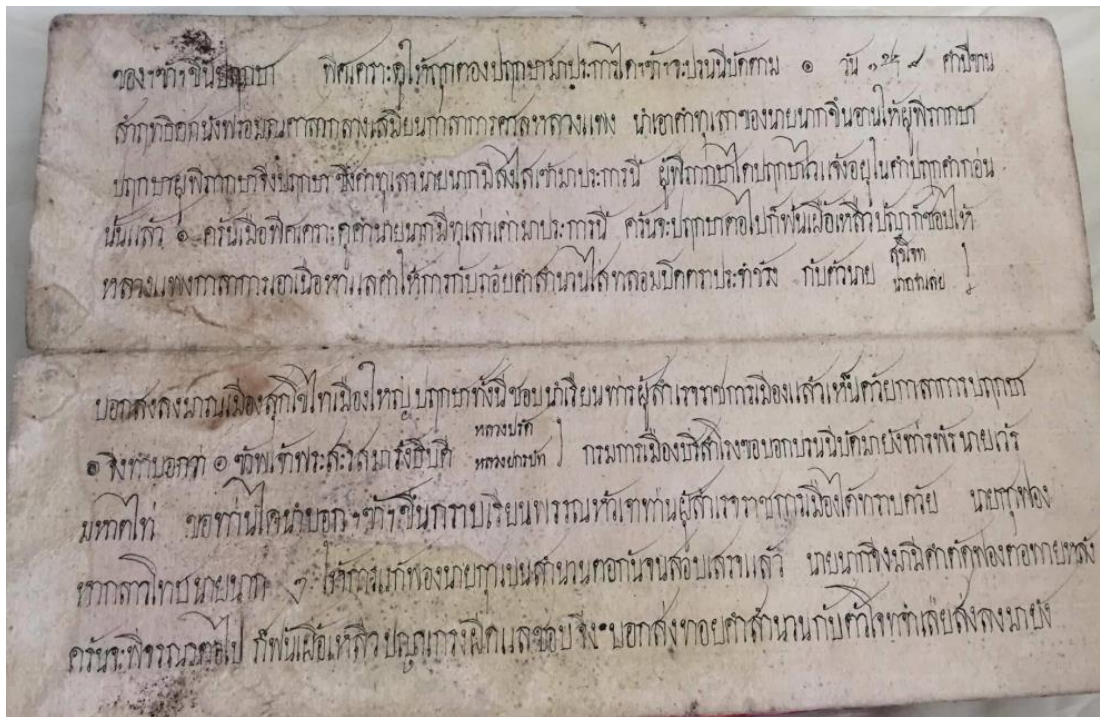 ของฯข้าฯขึ้นปฤกษา พิเคราะดูให้ถูกตองปฤกษามาประการใดฯข้าฯจะปรนนิบัดตาม ๏ วัน คำปีขาน
สำฤทธิศกนังพร้อมณะศาลากลางเสมียนกาลาการศาลหลวงแพง นำเอาคำทุเลาของนายนากขึ้นอานให้ผู้พิภากษา
ปฤกษาผู้พิภากษาจึ่งปฤกษา ซึ่งคำทุเลานายนากมีสงไสเข้ามาประการนี้ ผู้พิภากษาไดปฤกษาไวแจ้งอยู่ในคำปฤกคำก่อน
นั้นแล้ว ๏ ครันเมื่อพิเคราะดูคำนายนากมีทุเล่าเค่ามาประการนี้ ครันจะปฤกษาต่อไปก็พ้นเผือเหลือปันก็ชอบให้
หลวงแพงกาลาการเอาเนื้อหาแลคำให้การกับถ้อยคำสำนวนใส่กลอมปิดตราประจำ กับตัวนาย สุขโจท นากจำเลย
บอกสงลงมาณเมืองสุกโขไทเมืองใหญ ปฤกษาทั้งนี้ชอบนำเรียนท่านผู้สำเรจราชการเมืองแล้วเห็นด้วยกาลาการปฤกษา
๏ จึ่งทำบอกว่า ๏ ข้าพเจ้าพระสะวัสมารังธิบดี หลวงปรัด หลวงยกรบัท กรมการเมือง ขอบอกปรนนิบัดมายังท่านพัรนายเวร
มหาดไท่ ขอท่านไดนำบอกฯข้าฯขึ้นกราบเรียนพรรณหัวเจาท่านผู้สำเรจราชการเมืองได้ทราบด้วย นายทุฟอง
หากลาวโทษนายนาก ๆ ให้การแก้ฟองนายทุเปนสำนวนตอกันจนสอบเสรจแล้ว นายนากจึ่งมามีคำคัดฟองตอพายหลัง
ครันจะพิจรรณาต่อไป ก็พ้นเผือเหลือปัญาเกรงผิดแลชอบ จึ่งบอกส่งทอยคำสำนวนกับตัวโจทจำเลยส่งลงมายัง